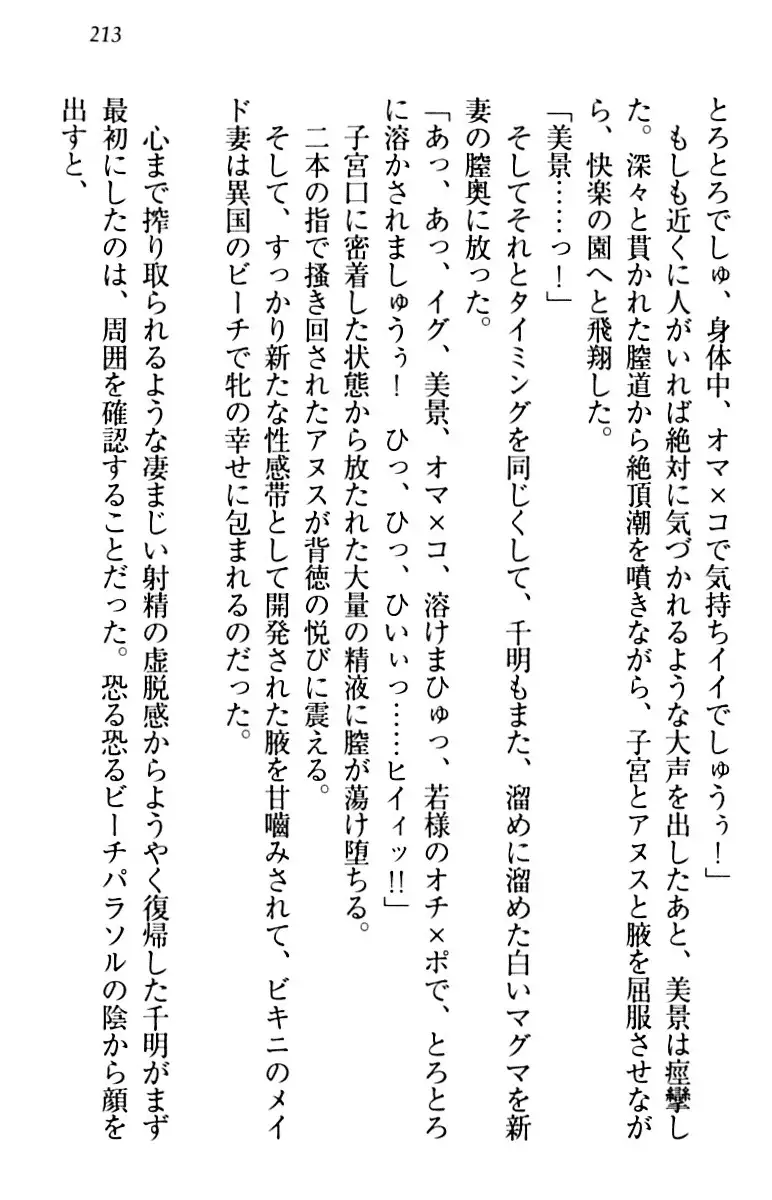 213
とろとろでしゅ、身体中、オマ×コで気持ちイイでしゅうぅ！」
　もしも近くに人がいれば絶対に気づかれるような大声を出したあと、美景は痙攣し
た。深々と貫かれた膣道から絶頂潮を噴きながら、子宮とアヌスと腋を屈服させなが
ら、快楽の園へと飛翔した。
「美景……っ！」
　そしてそれとタイミングを同じくして、千明もまた、溜めに溜めた白いマグマを新
妻の膣奥に放った。
「あっ、あっ、イグ、美景、オマ×コ、溶けまひゅっ、若様のオチ×ポで、とろとろ
に溶かされましゅうぅ！　ひっ、ひっ、ひいぃっ……ヒイィッ!!」
　子宮口に密着した状態から放たれた大量の精液に膣が蕩け堕ちる。
　二本の指で掻き回されたアヌスが背徳の悦びに震える。
　そして、すっかり新たな性感帯として開発された腋を甘嚙みされて、ビキニのメイ
ド妻は異国のビーチで牝の幸せに包まれるのだった。
　心まで搾り取られるような凄まじい射精の虚脱感からようやく復帰した千明がまず
最初にしたのは、周囲を確認することだった。恐る恐るビーチパラソルの陰から顔を
出すと、